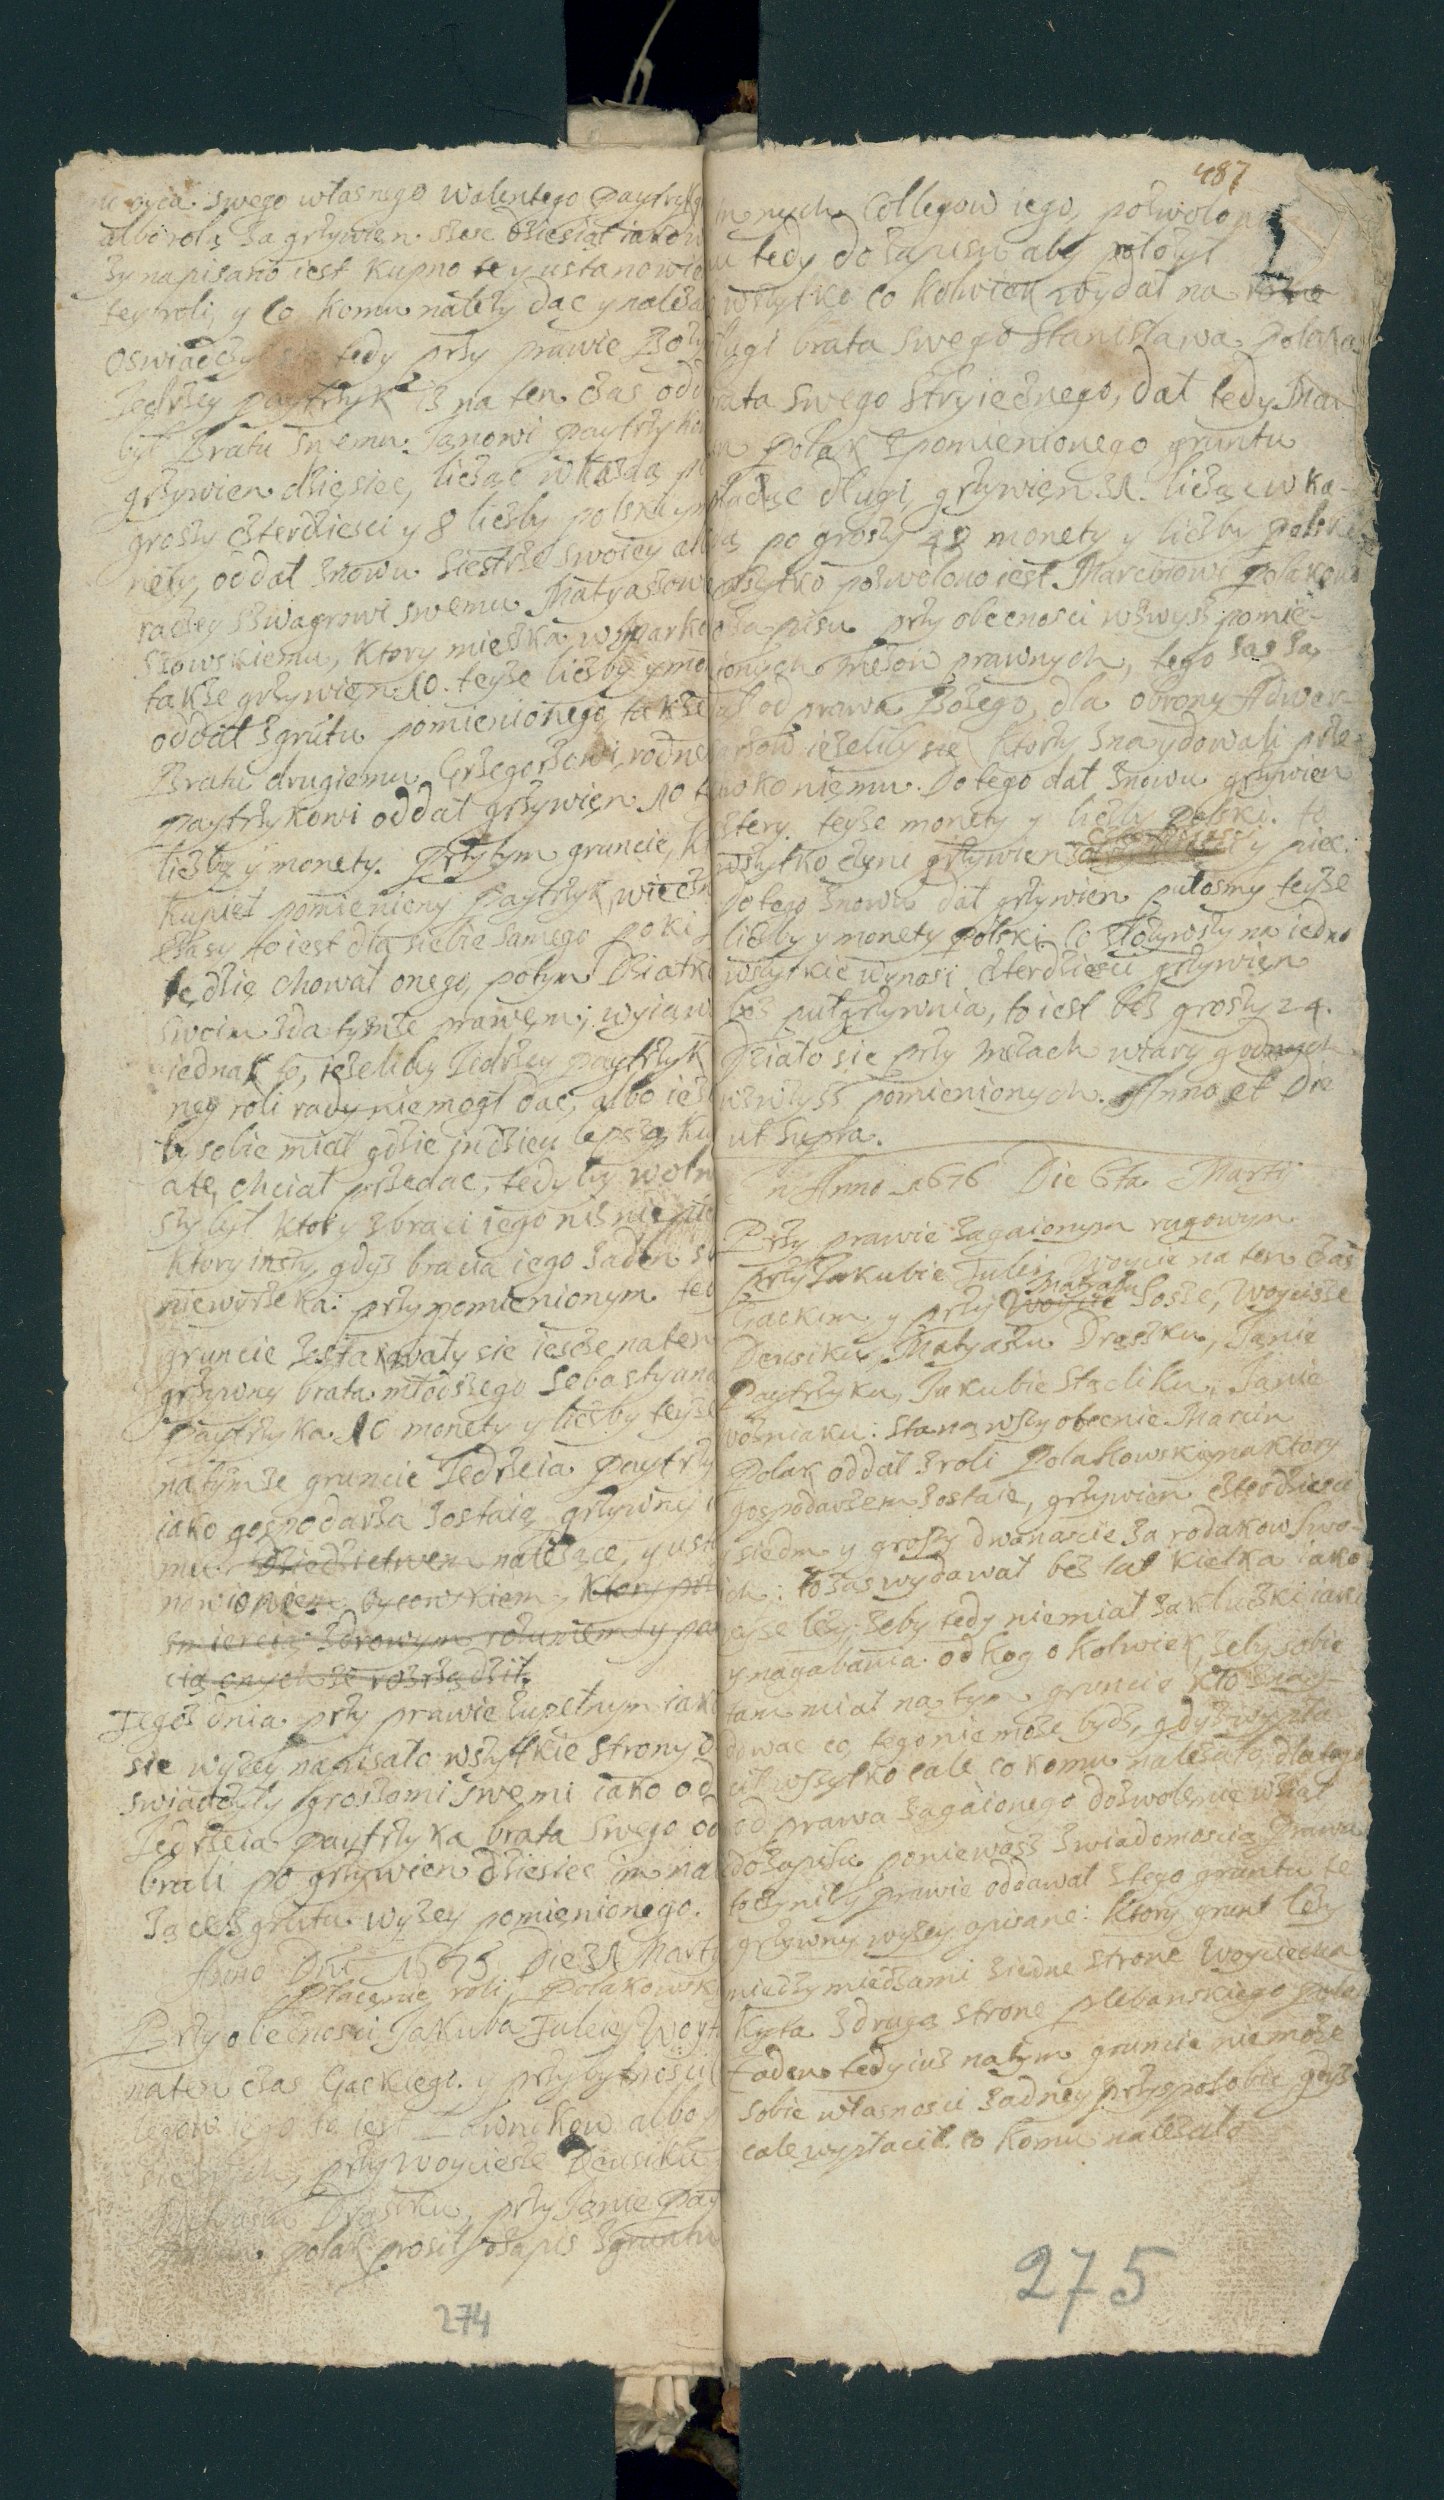 oyca swego własnego Walentego Paytrzyk
albo roli za grzywien szesc dziesiąt iako w
zy napisano iest kupno tey ustanowie
tey roli, y co komu nalezy dac y nalezał
oswiadczył sie tedy przy prawie Bozy
Jedrzey paytrzyk iz na ten czas odd
był Bratu swemu Janowi paytrzyko
grzywien dziesiec, licząc w kazdą
groszy czterdziesci y 8 liczby polski y m
nety, oddał znowu Siestrze swoiey al
raczey szwagrowi swemu Matyaszowi
szowskiemu, ktory mieszka w
takze grzywien 10. teyze liczby y mo
oddał z grutu pomienionego takze
Bratu drugiemu Grzegorzowi rodne
paytrzykowi oddał grzywien 10 t
liczby y monety. Przy tym gruncie, k
kupieł pomieniony Paytrzyk, wieczn
czasy to iest dla siebie samego poki
będzie chował onego, potym Dziatk
swoim zda tymze prawem; wyiąw
iednak to, iezeliby Jedrzey paytrzyk
ney roli rady nie mogł dac, albo iez
by sobie miał gdzie indziey lepszą ku
a tę chciał przedac, tedy by woln
szy był ktory z braci iego niz
ktory inszy, gdyz bracia iego zaden
niewyrzeka: przy pomienionym tedy
gruncie zostawały sie iescze na ten
grzywny brata młodszego Sobastyana
Paytrzyka 10 monety y liczby teyze
na tymze gruncie Jedrzeia Paytrzy
iako gospodarza zostaią grzywny
mu dziedzictwem nalezące, y usta
nowieniem oycowskiem, ktory prz
smiercią zdrowym rozumem y pam
cią onych ze rozrządził.
Tegoz dnia przy prawie zupełnym iako
sie wyzey napisało wszytkie strony o
swiadczyły groszami swemi iako od
Jedrzeia paytrzyka brata swego od
brali po grzywien dziesiec im nal
zące z grutu wyzey pomienionego.
Anno Dni 1675 Die 31 Marty
Płacenie roli Polakowski
Przy obecnosci Jakuba Juliey Woyt
na ten czas Gackiego. y przy bytnosci
legow iego to iest Ławnikow albo
przy woyciesze Deusiku
Matyaszu Drąszku, przy Janie Pay
polak prosił o zapis z gruntu
274

487
nych Collegow iego, pozwolono
tedy do zapisu aby połozył
wszytko co kolwiek wydał na
długi brata swego Stanisława Polaka
brata swego Stryiecznego, dał tedy Mar
Polak z pomienionego gruntu
płacąc długi, grzywien 31. licząc w ka-
zdą po groszy 48 monety y liczby polski
wszytko pozwolono iest Marcinowi Polakowi
zapisu przy obecnosci wzwysz pomie-
nionych Męzow prawnych, tego zas za
od prawa Bozego, dla obrony Adwer-
sarzow iezeliby sie ktorzy znaydowali prze-
ciwko niemu. Do tego dał znowu grzywien
cztery teyze monety y liczby Polski. to
wszytko czyni grzywien y piec.
Do tego znowu dał grzywien pułosmy teyze
liczby y monety polski. Co złozywszy na iedno
wszytkie wynosi czterdziesci grzywien
bez pułgrzywnia, to iest bez groszy 24.
Działo sie przy Męzach wiary godnych
wzwysz pomienionych. Anno et Die
ut supra.
In Anno 1676 Die 6ta Martij
Przy prawie zagaionym rugowym
przy Jakubie Juliei Woycie na ten czas
Gackim y przy Woycie Matyaszu Sosze, Woyciesze
Deusiku, Matyaszu Drąszku, Janie
Paytrzyku, Jakubie Stacliku, Janie
Wozniaku: Stanąwszy obecnie Marcin
Polak oddał z roli Polakowskiey na ktory
gospodarzem zostaie, grzywien czterdziesci
y siedm y groszy dwanascie za rodakow Swo-
ich: to zas wydawał bez lat kielka iako
wyze lezy; zeby tedy niemiał zakłucki iaki
y nagabania od kogo kolwiek, zeby sobie
tam miał na tym gruncie kto znay-
dowac co, tego nie moze bydz, gdyz wypła
cił wszytko cale co komu nalezało, dla tego
od prawa zagaionego dozwolenie wziął
do zapisu poniewasz z wiadomoscią Prawa
to czynił y prawie oddawał z tego gruntu te
grzywny wyzey opisane: ktory grunt lezy
miedzy miedzami z iedne strone Woyciecha
Kyta z drugą strone plebanskiego pola
zaden tedy iuz na tym gruncie nie moze
sobie własnosci zadney przysposobic gdyz
cale wypłacił co komu nalezało
275